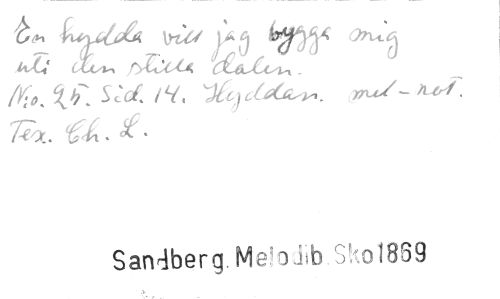 En hydda vill jag bygga mig
uti den stilla dalen.
N:o. 25. Sid. 14. Hyddan. mel-not.
Tex. Ch. L.
Sandberg. Melodib. Sko1869